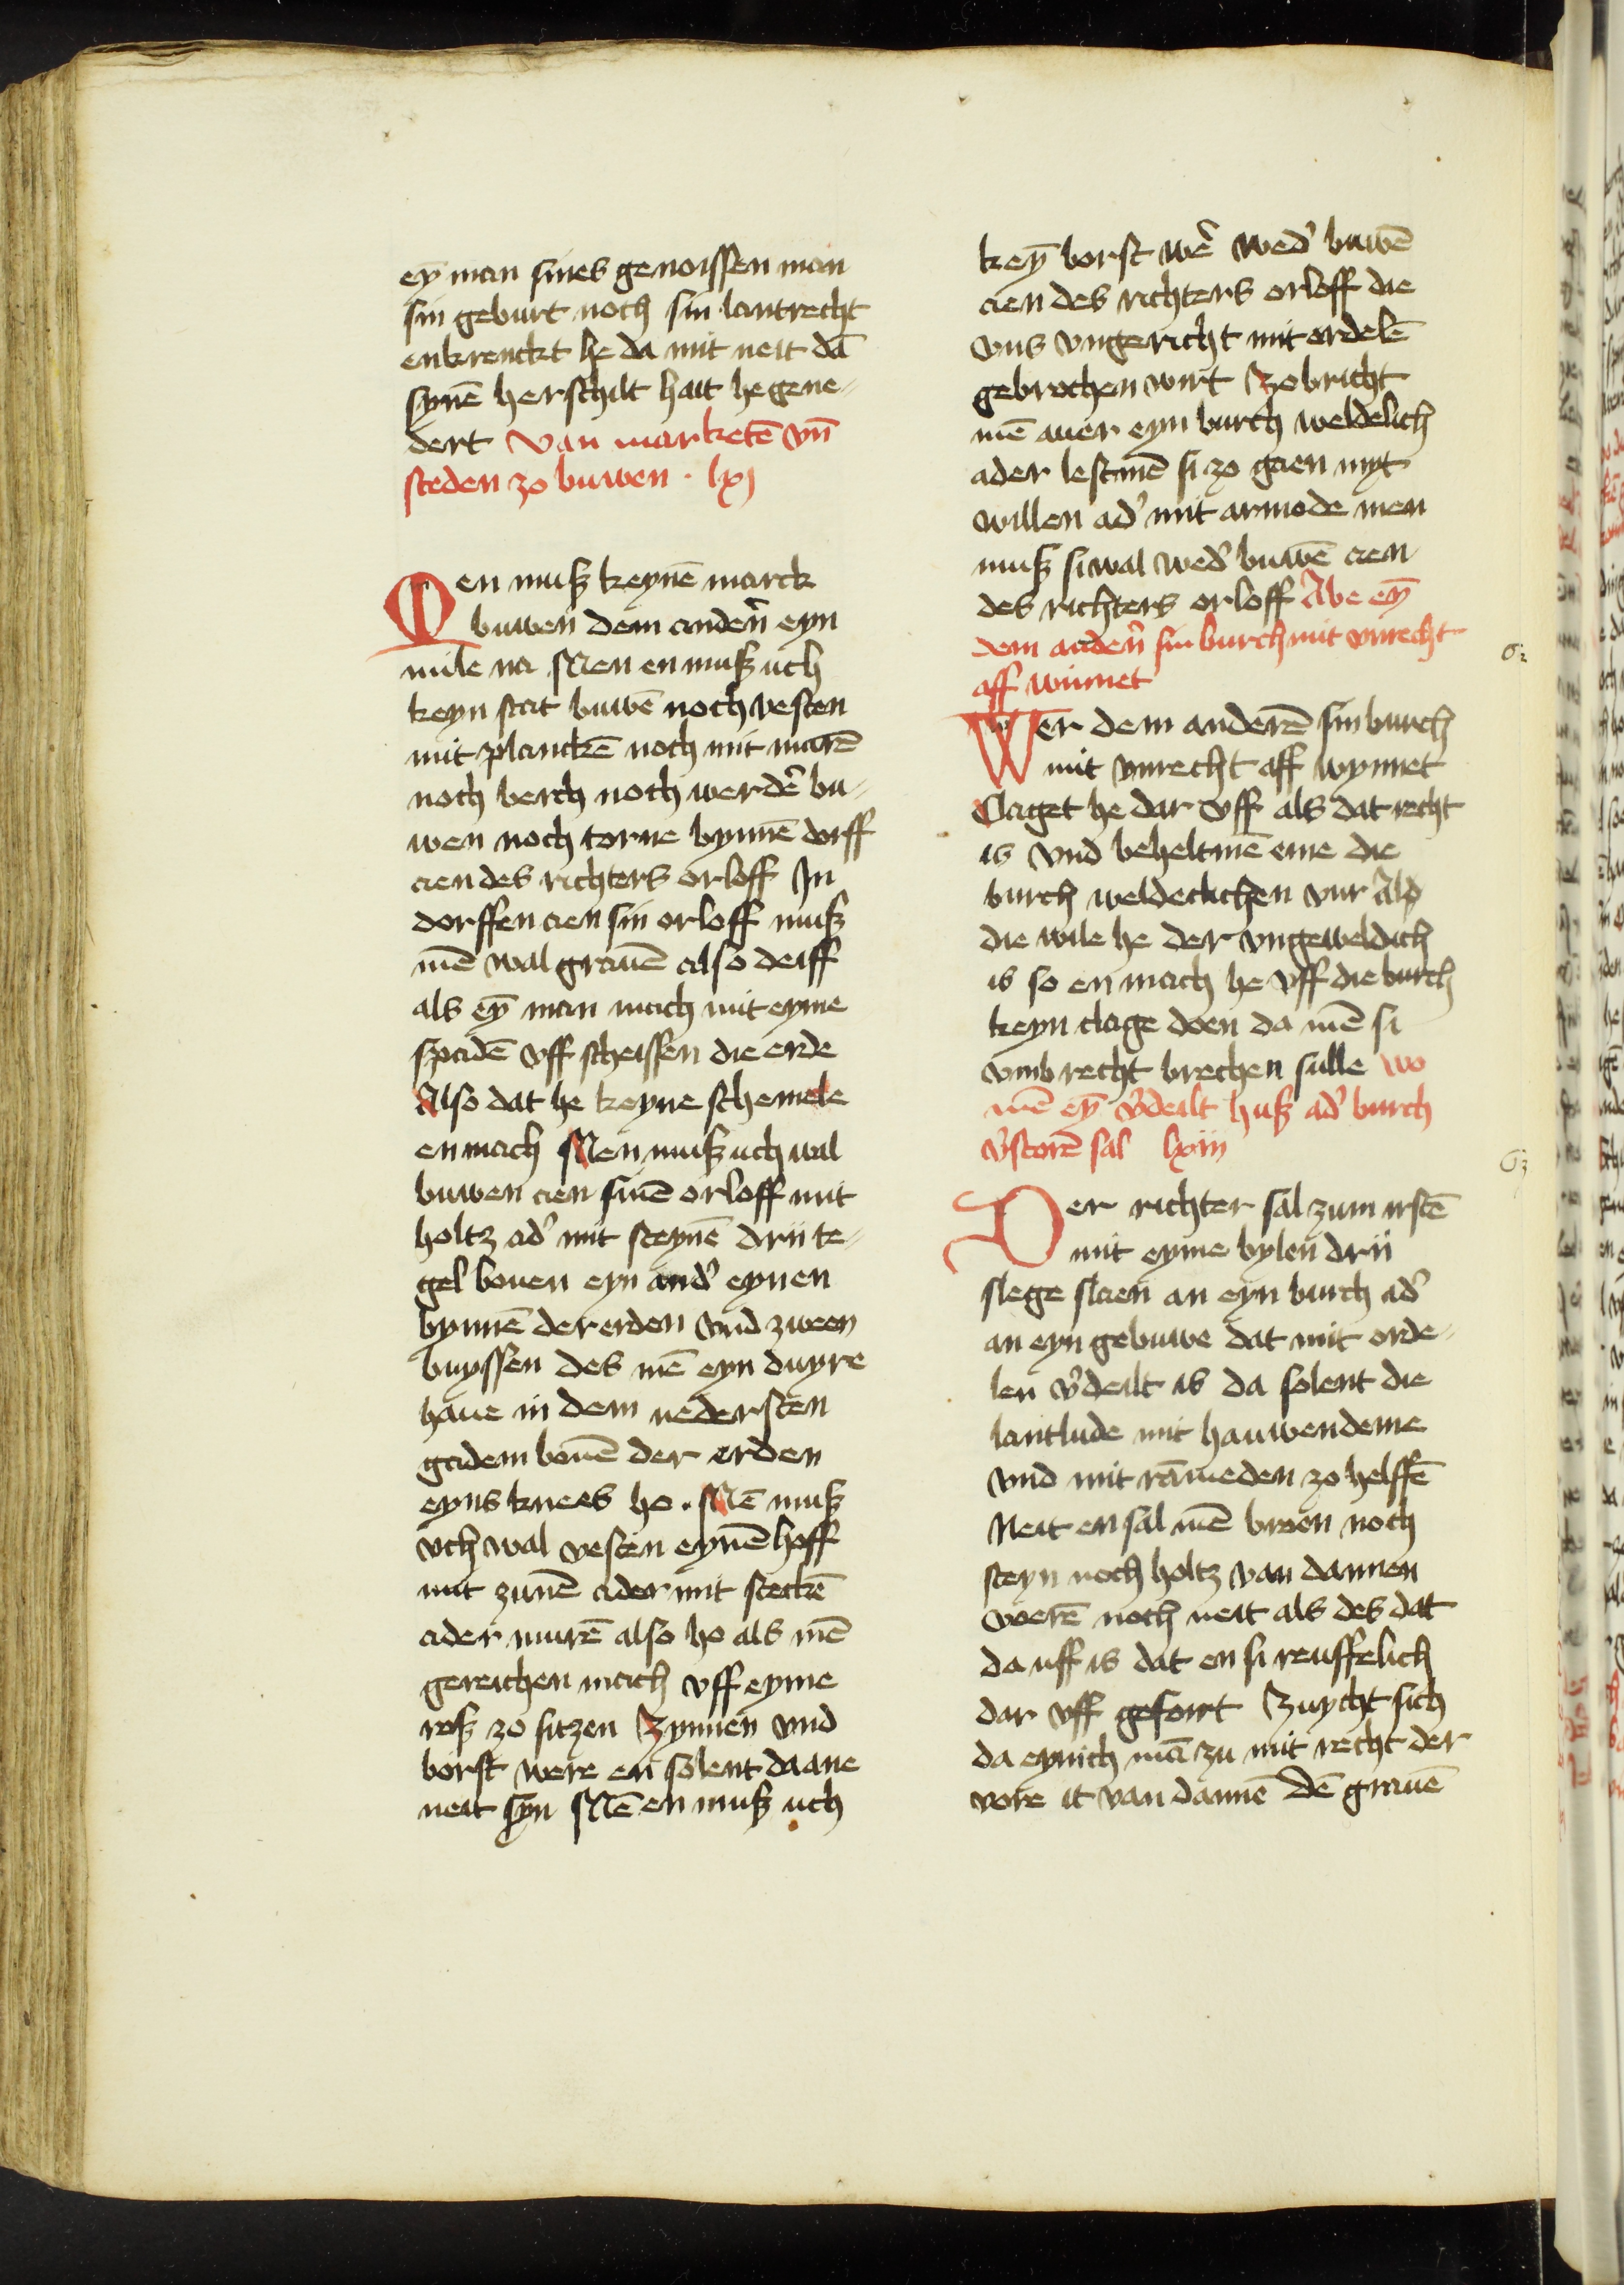 eȳ man sines genoissen man
sin geburt noch sin lantrecht
enkrenckt he da mit neit dā
synē herschilt hait he gene-
dert Van marketē vn̄
steden zo buwen · lxj
Men musz keynē marck
buwen dem anden̄ eyn
mile na Men en musz uch
keyn stat buwē noch vesten
mit planckē noch mit murē
noch berch noch werdē bu-
wen noch torne bynnē dorff
aen des richters orloff In
dorffen aen sin orloff musz
mē wal grauē also deiff
als eȳ man mach mit eyme
spadē vff scheissen die erde
Also dat he keyne schemele
en mach Men musz uch wal
buwen aen sinē orloff mit
holtz ad' mit steynē drii te-
gel bouen eyn and' eynen
bynnē der erden vnd zween
buyssen des mē eyn duyre
haue in dem nedersten
gadem bouē der erden
eyns knees ho . Mē musz
vch wal vesten eynē hoff
mit zunē ader mit steckē
ader murē also ho als mē
gereichen mach vff eyme
rosz zo sitzen Zynnen vnd
borst were en solent da ane
neit syn Mē en musz uch
keȳ borst wē wed' buwē
aen des richters orloff die
vns vngericht mit ordelē
gebrochen wirt Zobricht
mē auer eyn burch weldelich
ader lest mē si zo gaen myt
willen ad' mit armode men
musz si wal wed' buwē aen
des richters orloff Abe eȳ
dem anden̄ sin burch mit vnrecht
aff winnet
62
Wer dem anderē sin burch
mit vnrecht aff wynnet
Claget he dar vff als dat recht
is vnd beheltmē eme die
burch weldeclichen vur Alp
die wile he der vngeweldich
is so en mach he vff die burch
keyn clage doen da mē si
vmb recht brechen sulle wo
mē eȳ v'deilt husz ad' burch
v'storē sal lxiij
63
Der richter sal zum irstē
mit eyme bylen drii
slege slaen an eyn burch ad'
an eyn gebuwe dat mit orde-
len v'deilt is da solent die
lantlude mit hauwendeme
vnd mit rāmeden zo helffē
Neit en sal mē broen noch
steyn noch holtz van dannen
voerē noch neit als des dat
da uff is dat en si reuffelich
dar vff gefoirt Zuycht sich
da eynich mā zu mit recht der
vore it van dannē Dē grauē